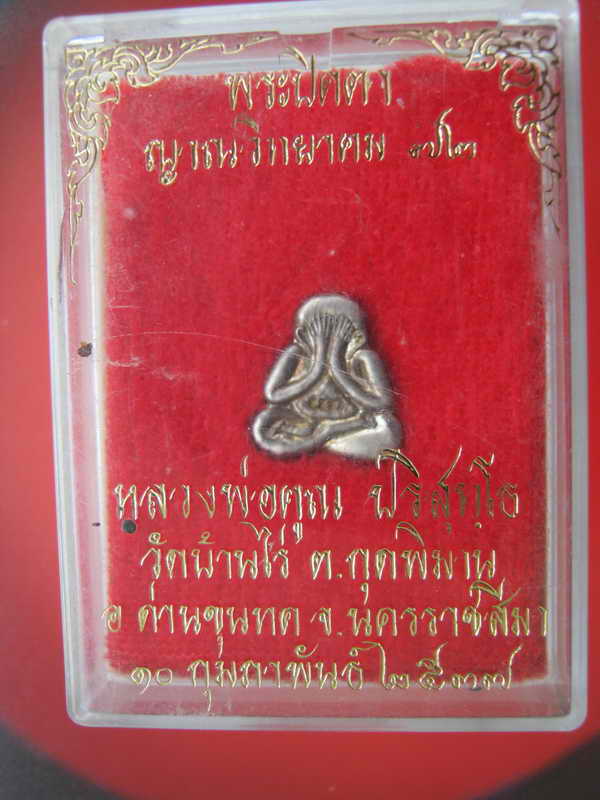 พระปิดตา
ญาณวิทยาคม ๗๒
หลวงพ่อคูณ ปริสุทฺโธ
วัดบ้านไร่ ต.กุดพิมาน
อ ด่านขุนทด จ.นครราชสีมา
๑๐ กุมภาพันธ์ ๒๕๓๗